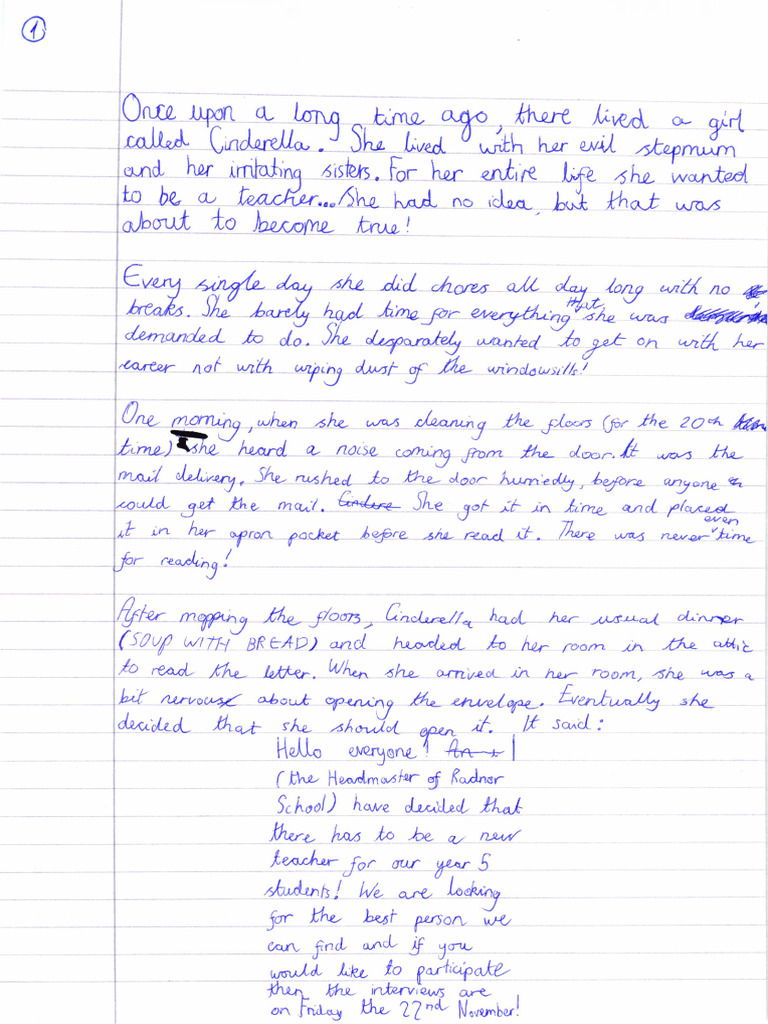 1
Once upon a long time ago, there lived a girl
called Cinderella. She lived with her evil stepmum
and her irritating sisters. For her entire life she wanted
to be a teacher... She had no idea, but that was
about to become true!
Every single day she did chores all day long with no
breaks. She barely had time for everything that she was
demanded to do. She desparately wanted to get on with her
career not with wiping dust of the windowsills!
One morning, when she was cleaning the floors (for the 20th
time) she heard a noise coming from the door. It was the
mail delivery. She rushed to the door hurriedly, before anyone
could get the mail. Cindere She got it in time and placed
it in her apron pocket before she read it. There was never even time
for reading!
After mopping the floors, Cinderella had her usual dinner
(SOUP WITH BREAD) and headed to her room in the attic
to read the letter. When she arrived in her room, she was a
bit nervous about opening the envelope. Eventually she
decided that she should open it. It said:
Hello everyone! I
(the Headmaster of Radnor
School) have decided that
there has to be a new
teacher for our year 5
students! We are looking
for the best person we
can find and if you
would like to participate
then the interviews are
on Friday the 22nd November!